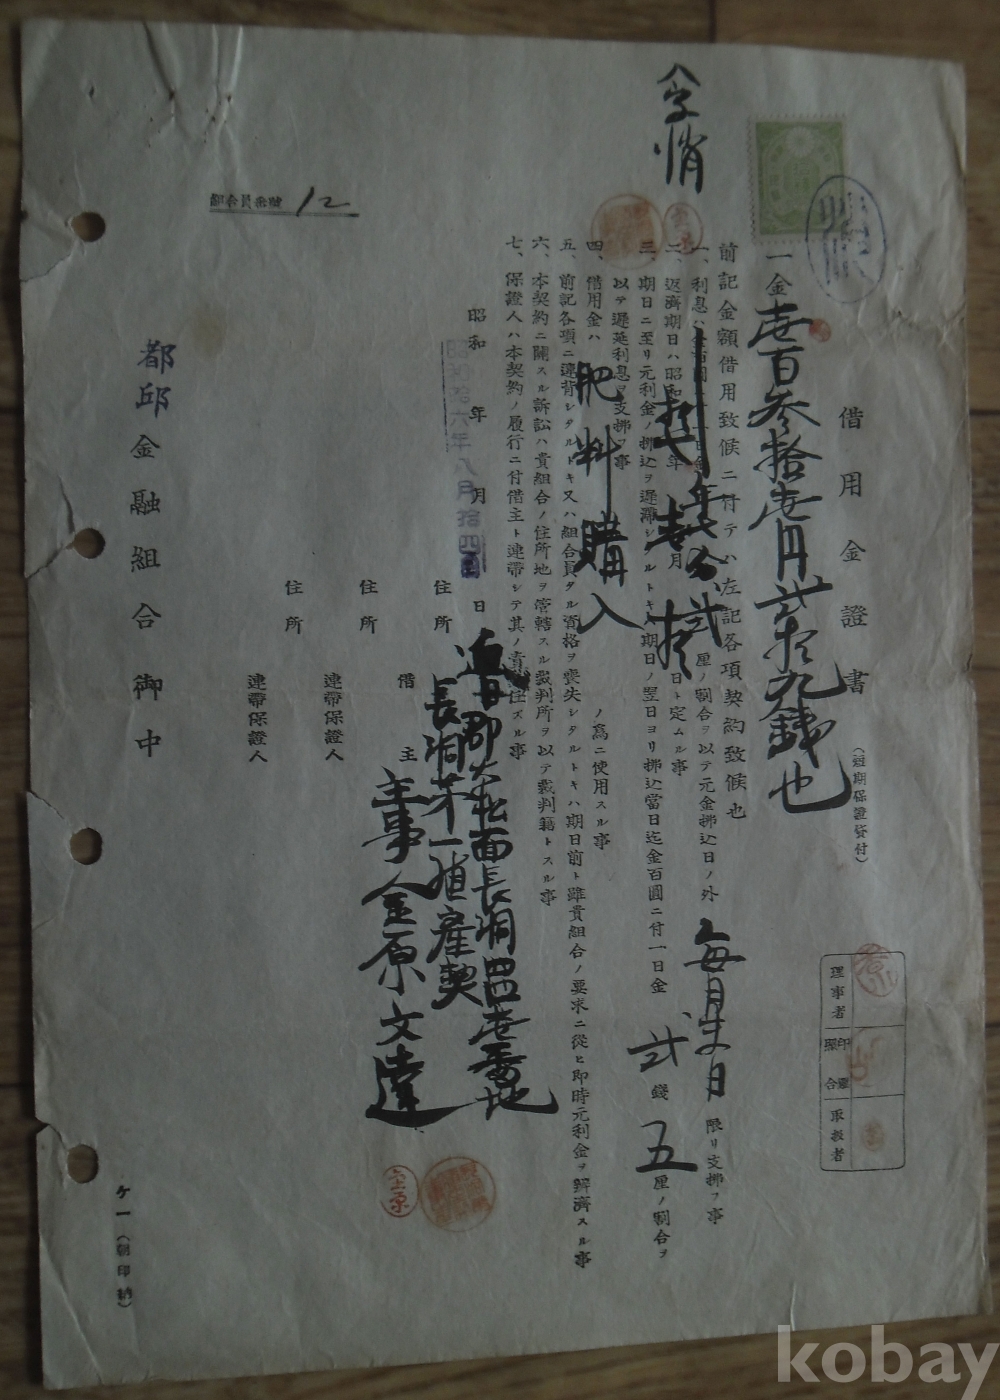 借用金證書
(短期保證貸付)
一金壱百参拾壱円弐拾九銭也
前記金額借用致候ニ付テハ左記各項契約致候也
一、利息ハ 厘ノ割合ヲ以テ元金拂込日ノ外 毎月末日 限リ支拂フ事
二、返濟期日ハ昭和 年 月 日ト定ムル事
三、期日ニ至リ元利金ノ拂込ヲ遅滯シタルトキハ期日ノ翌日ヨリ拂込當日迄金百圓ニ付一日金 弐 錢 五 厘ノ割合ヲ
以テ遅延利息ヲ支拂フ事
四、借用金ハ 肥料購入 ノ為ニ使用スル事
五、前記各項ニ違背シタルトキ又ハ組合員タル資格ヲ喪失シタルトキハ期日前ト雖貴組合ノ要求ニ從ヒ即時元利金ヲ辨濟スル事
六、本契約ニ關スル訴訟ハ貴組合ノ住所地ヲ管轄スル裁判所ヲ以テ裁判籍トスル事
七、保證人ハ本契約ノ履行ニ付借主ト連帶シテ其ノ責ニ任ズル事
昭和 年 月 日
昭和拾六年八月拾四日
住所 迎日郡 面長洞 番地
長洞第一殖産契
借主 主事 金原文達
住所
連帶保證人
住所
連帶保證人
都邱金融組合御中
12
理事者
印鑑照合
取扱者
ケー(朝印納)
kobay